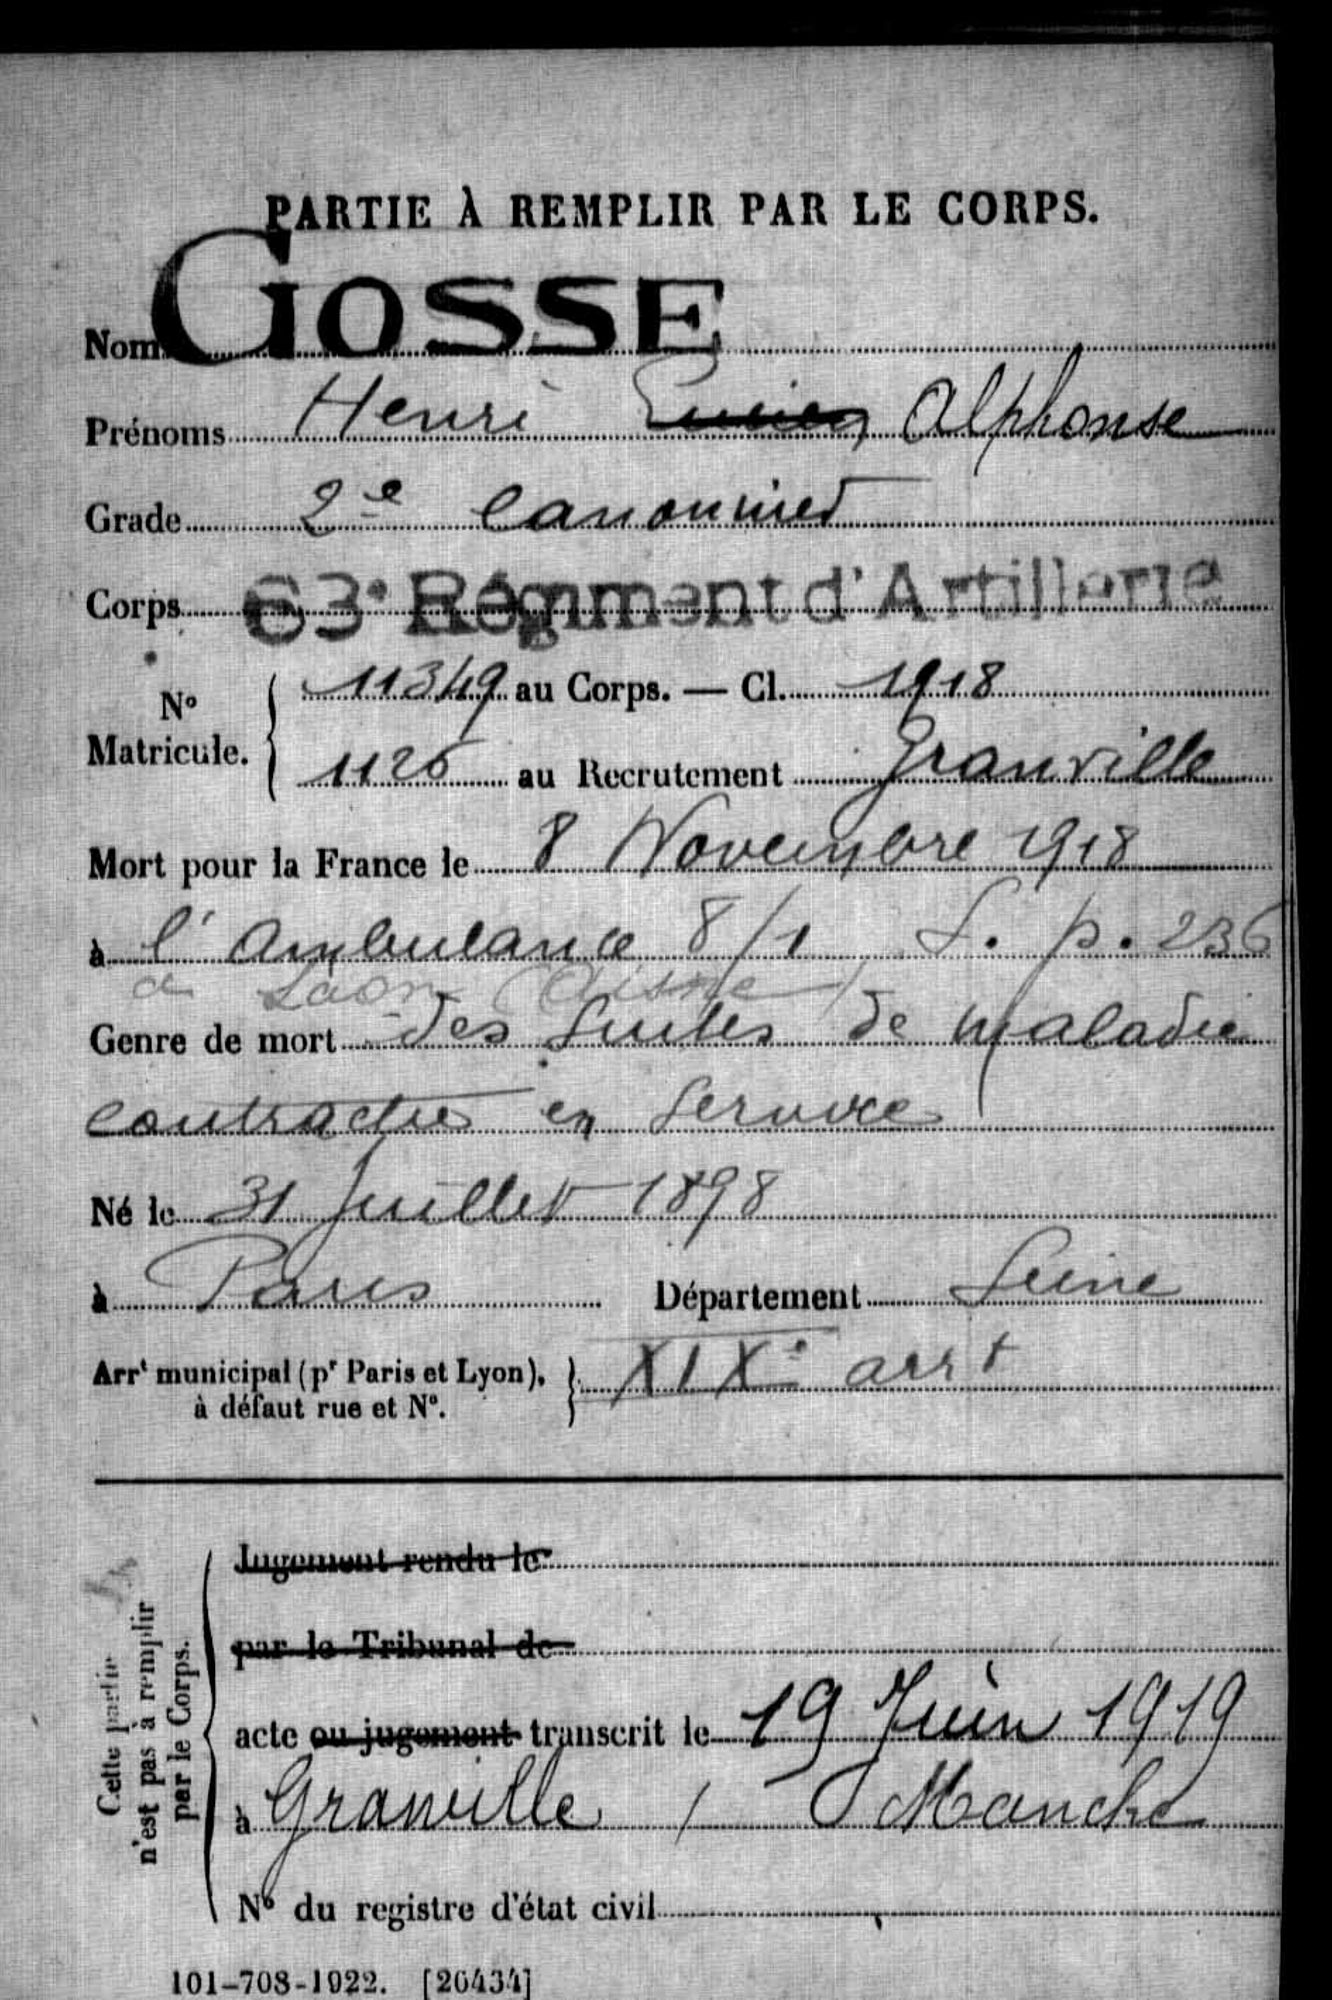 PARTIE À REMPLIR PAR LE CORPS.
Nom GOSSE
Prénoms Henri Lucien Alphonse
Grade 2e Canonnier
Corps 63e Régiment d'Artillerie
N° Matricule. 11349 au Corps. — Cl. 1918
1126 au Recrutement Granville
Mort pour la France le 8 Novembre 1918
à l'Ambulance 8/1 S. p. 236
à Laon (Aisne)
Genre de mort des suites de maladie
contractée en service
Né le 31 Juillet 1898
à Paris Département Seine
Arrt municipal (pr Paris et Lyon), XIXe arrt
à défaut rue et N°.
Cette partie n'est pas à remplir par le Corps.
Jugement rendu le
par le Tribunal de
acte ou jugement transcrit le 19 Juin 1919
à Granville / Manche
N° du registre d'état civil
101-708-1922. [26434]